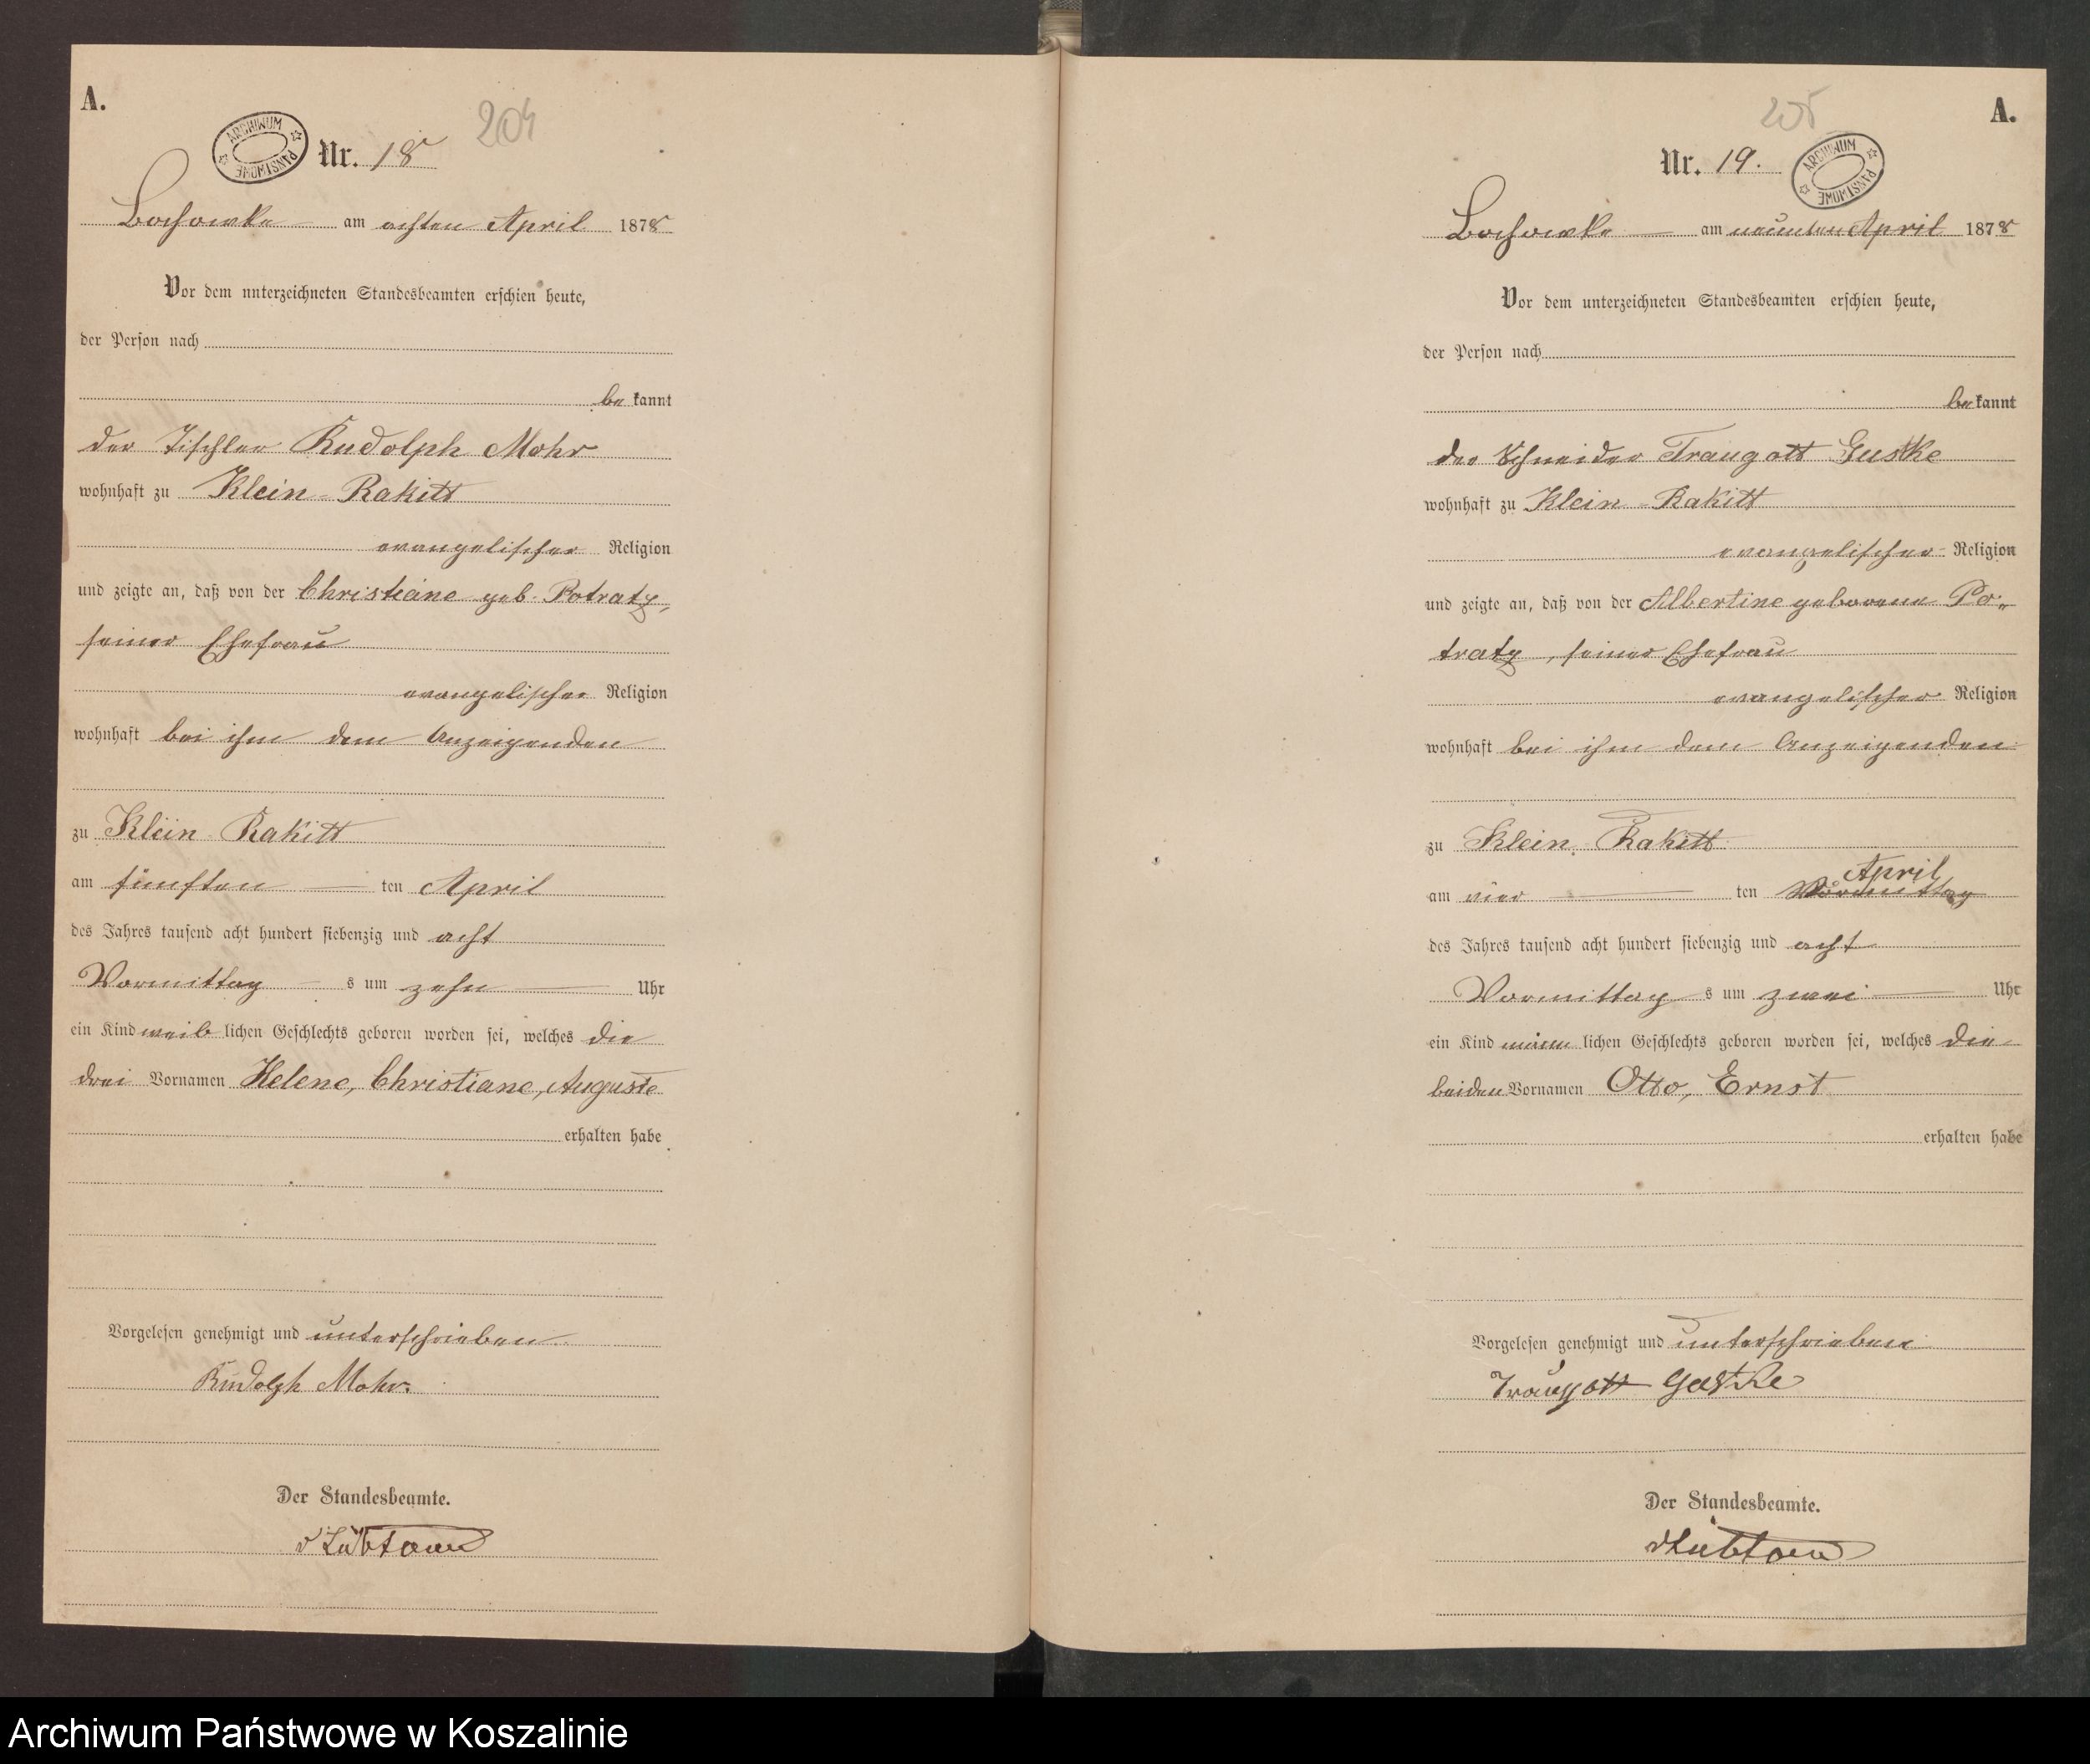 A.
204
ARCHIWUM PAŃSTWOWE
Nr. 18
Bochowke am achten April 1878
Vor dem unterzeichneten Standesbeamten erschien heute,
der Person nach
be kannt
der Tischler Rudolph Mohr
wohnhaft zu Klein-Rakitt
evangelischer Religion
und zeigte an, daß von der Christiane geb. Potratz,
seiner Ehefrau
evangelischer Religion
wohnhaft bei ihm dem Anzeigenden
zu Klein Rakitt
am fünften ten April
des Jahres tausend acht hundert siebenzig und acht
Vormittag s um zehn Uhr
ein Kind weib lichen Geschlechts geboren worden sei, welches die
drei Vornamen Helene, Christiane, Auguste
erhalten habe
Vorgelesen genehmigt und unterschrieben
Rudolph Mohr.
Der Standesbeamte.
v Lübtow
205
A.
Nr. 19.
ARCHIWUM PAŃSTWOWE
Bochowke am neunten April 1878
Vor dem unterzeichneten Standesbeamten erschien heute,
der Person nach
be kannt
der Schneider Traugott Guske
wohnhaft zu Klein-Rakitt
evangelischer Religion
und zeigte an, daß von der Albertine geborene Po-
tratz, seiner Ehefrau
evangelischer Religion
wohnhaft bei ihm dem Anzeigenden
zu Klein-Rakitt
April
am vier ten Vormittag
des Jahres tausend acht hundert siebenzig und acht
Vormittag s um zwei Uhr
ein Kind männ lichen Geschlechts geboren worden sei, welches die
beiden Vornamen Otto, Ernst
erhalten habe
Vorgelesen genehmigt und unterschrieben
Traugott Guske
Der Standesbeamte.
v Lübtow
Archiwum Państwowe w Koszalinie